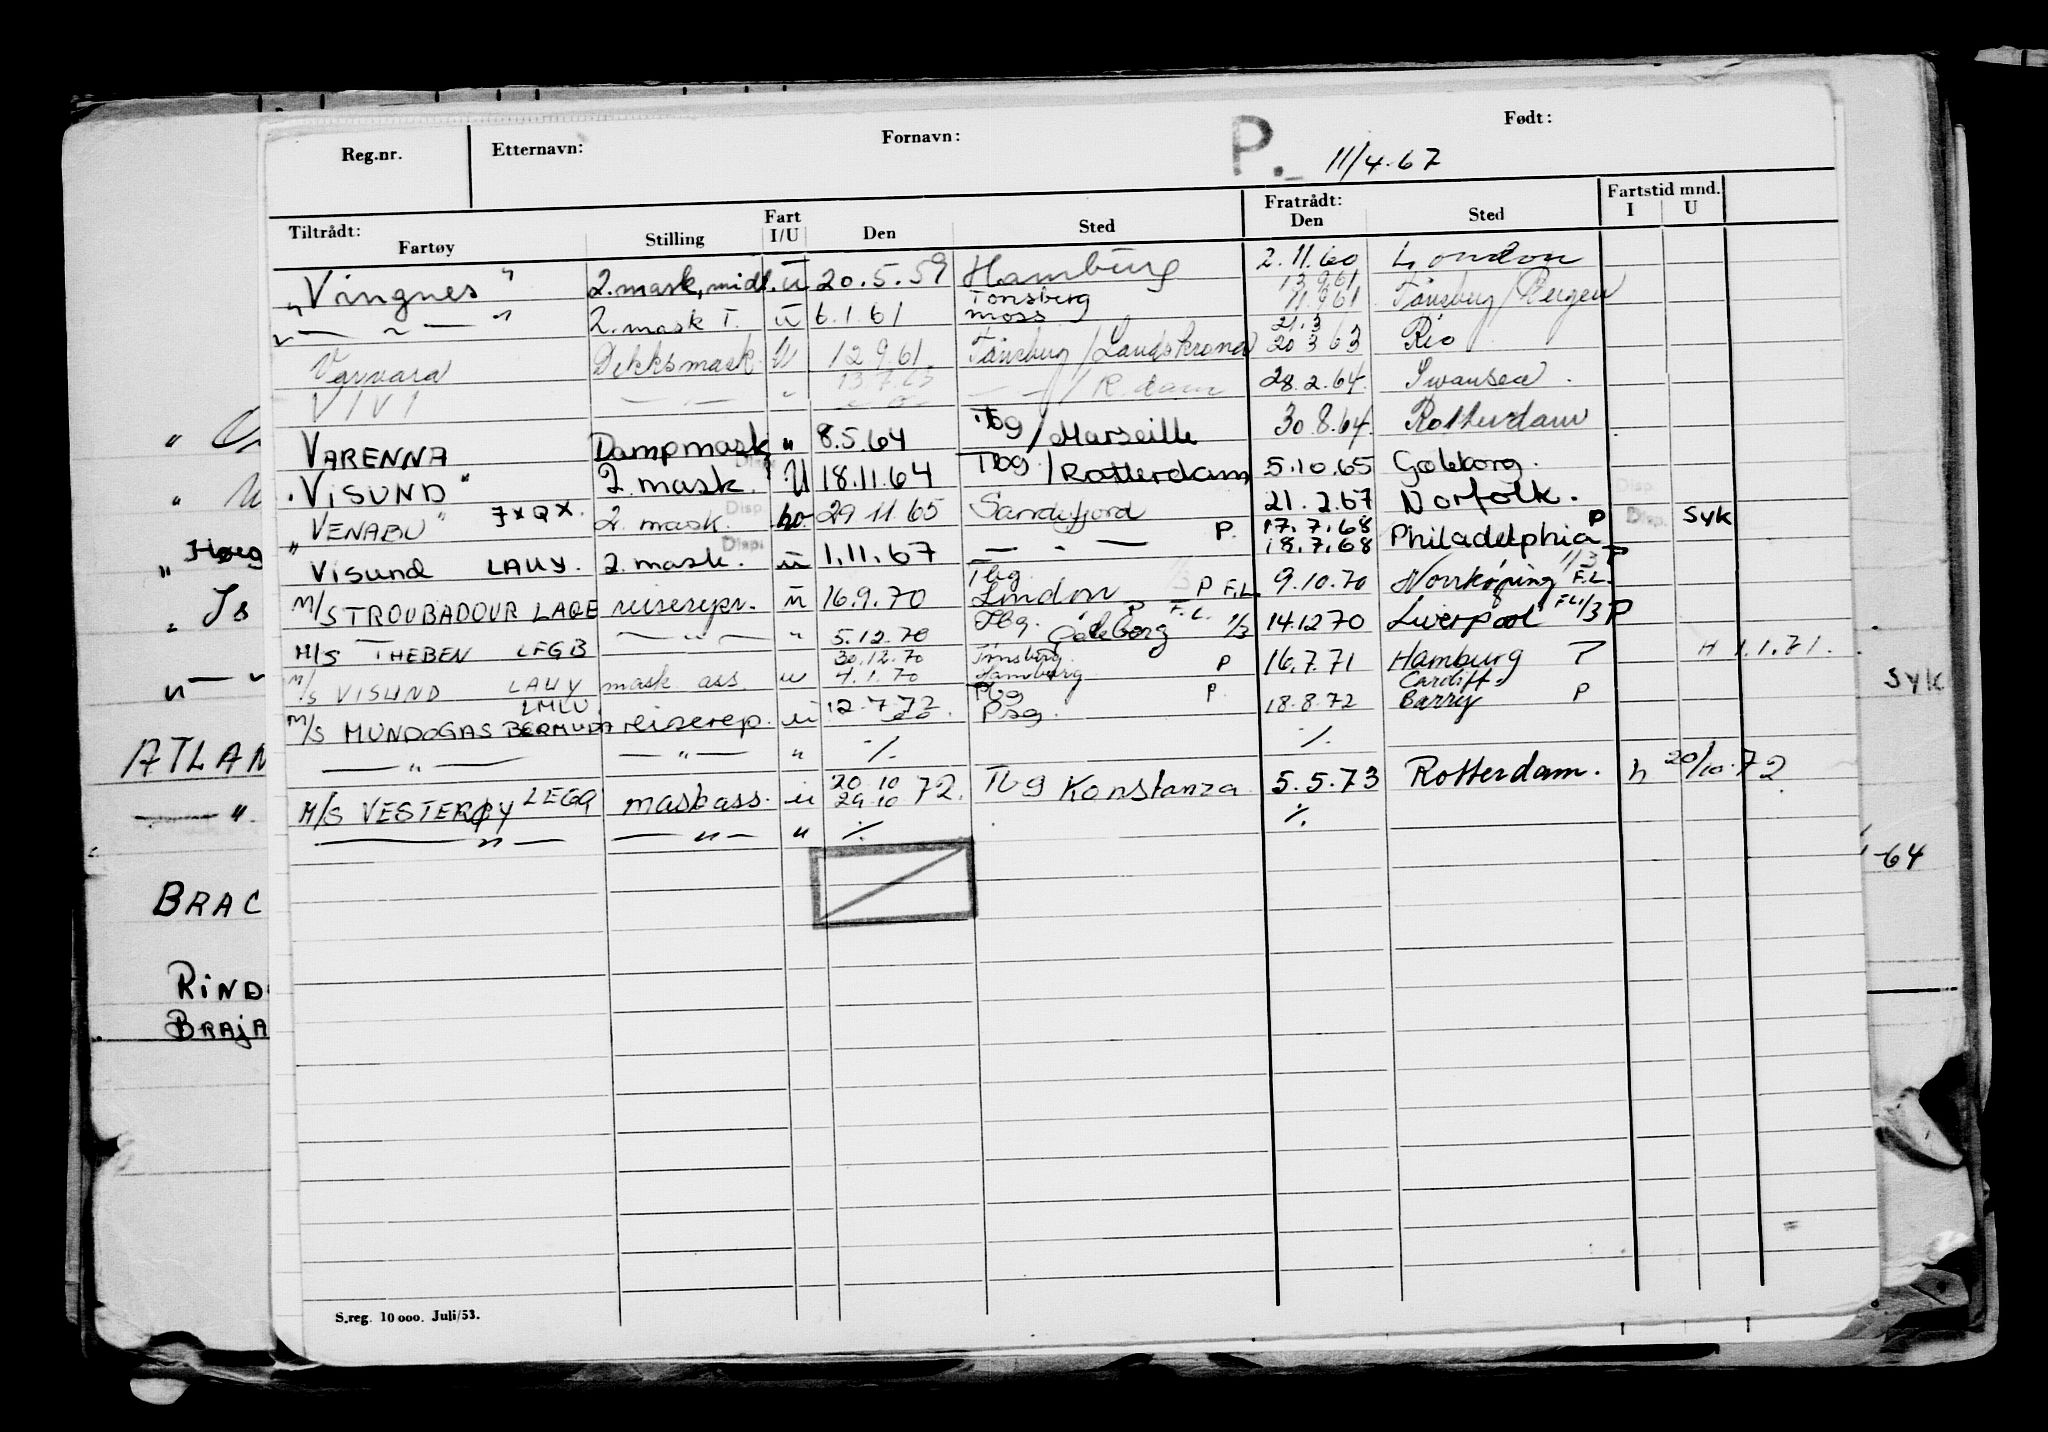 Reg.nr. Etternavn: Fornavn: P. 11/4.67 Født:
Tiltrådt: Fartøy Stilling Fart I/U Den Sted Fratrådt: Den Sted Fartstid mnd. I U
"Vingnes" 2.mask, midl. ü 20.5.59 Hamburg 2.11.60 London
" — " — " 2. mask T. ü 6.1.61 Tønsberg Moss 13.9.61 11.9.61 Tønsberg / Bergen
Varvara Dekksmask U 12.9.61 Tønsberg / Landskrona 21.3 20.3.63 Rio
VIVI — " — " 13.7.63 — " — / R.dam 28.2.64. Swansea.
VARENNA Dampmask " 8.5.64 Tbg / Marseille 30.8.64. Rotterdam
"VISUND" 2. mask. U 18.11.64 Tbg. / Rotterdam 5.10.65 Gøteborg.
"VENABU" JXQX. 2. mask. 29 11 65 Sandefjord 21.2.67 Norfolk.
Visund LAUY. 2. mask. ü 1.11.67 — " — P. 17.7.68 18.7.68 Philadelphia P Disp. Syk
M/S TROUBADOUR LAQE reiserepr. ü 16.9.70 Tbg. London P F.L. 9.10.70 Norrkøping F.L. 1/3 P
M/S THEBEN LFGB — " — " 5.12.70 Tbg. Gøteborg P F.L. 1/3 14.12 70 Liverpool F.L. 1/3 P
M/S VISUND LAUY mask ass. u 30.12.70 4.1.70 Tønsberg. Hamburg P 16.7.71 Hamburg P H 1.1.71.
M/S MUNDOGAS BERMUDA LMLU. reiserep. u 12.7.72 Tbg Psg. P. 18.8.72 Cardiff Barry P
— " — — " — " ·/. ·/.
M/S VESTERØY LEGQ maskass. u 20 10 29 10 72. Tbg Konstanza 5.5.73 Rotterdam. h 20/10.72
— " — — " — " ·/. ·/.
S.reg. 10 000. Juli/53.
" Høeg
" Is
" — "
ATLAN
— " .
BRAC
RIND
BRAJA
SYK
-64